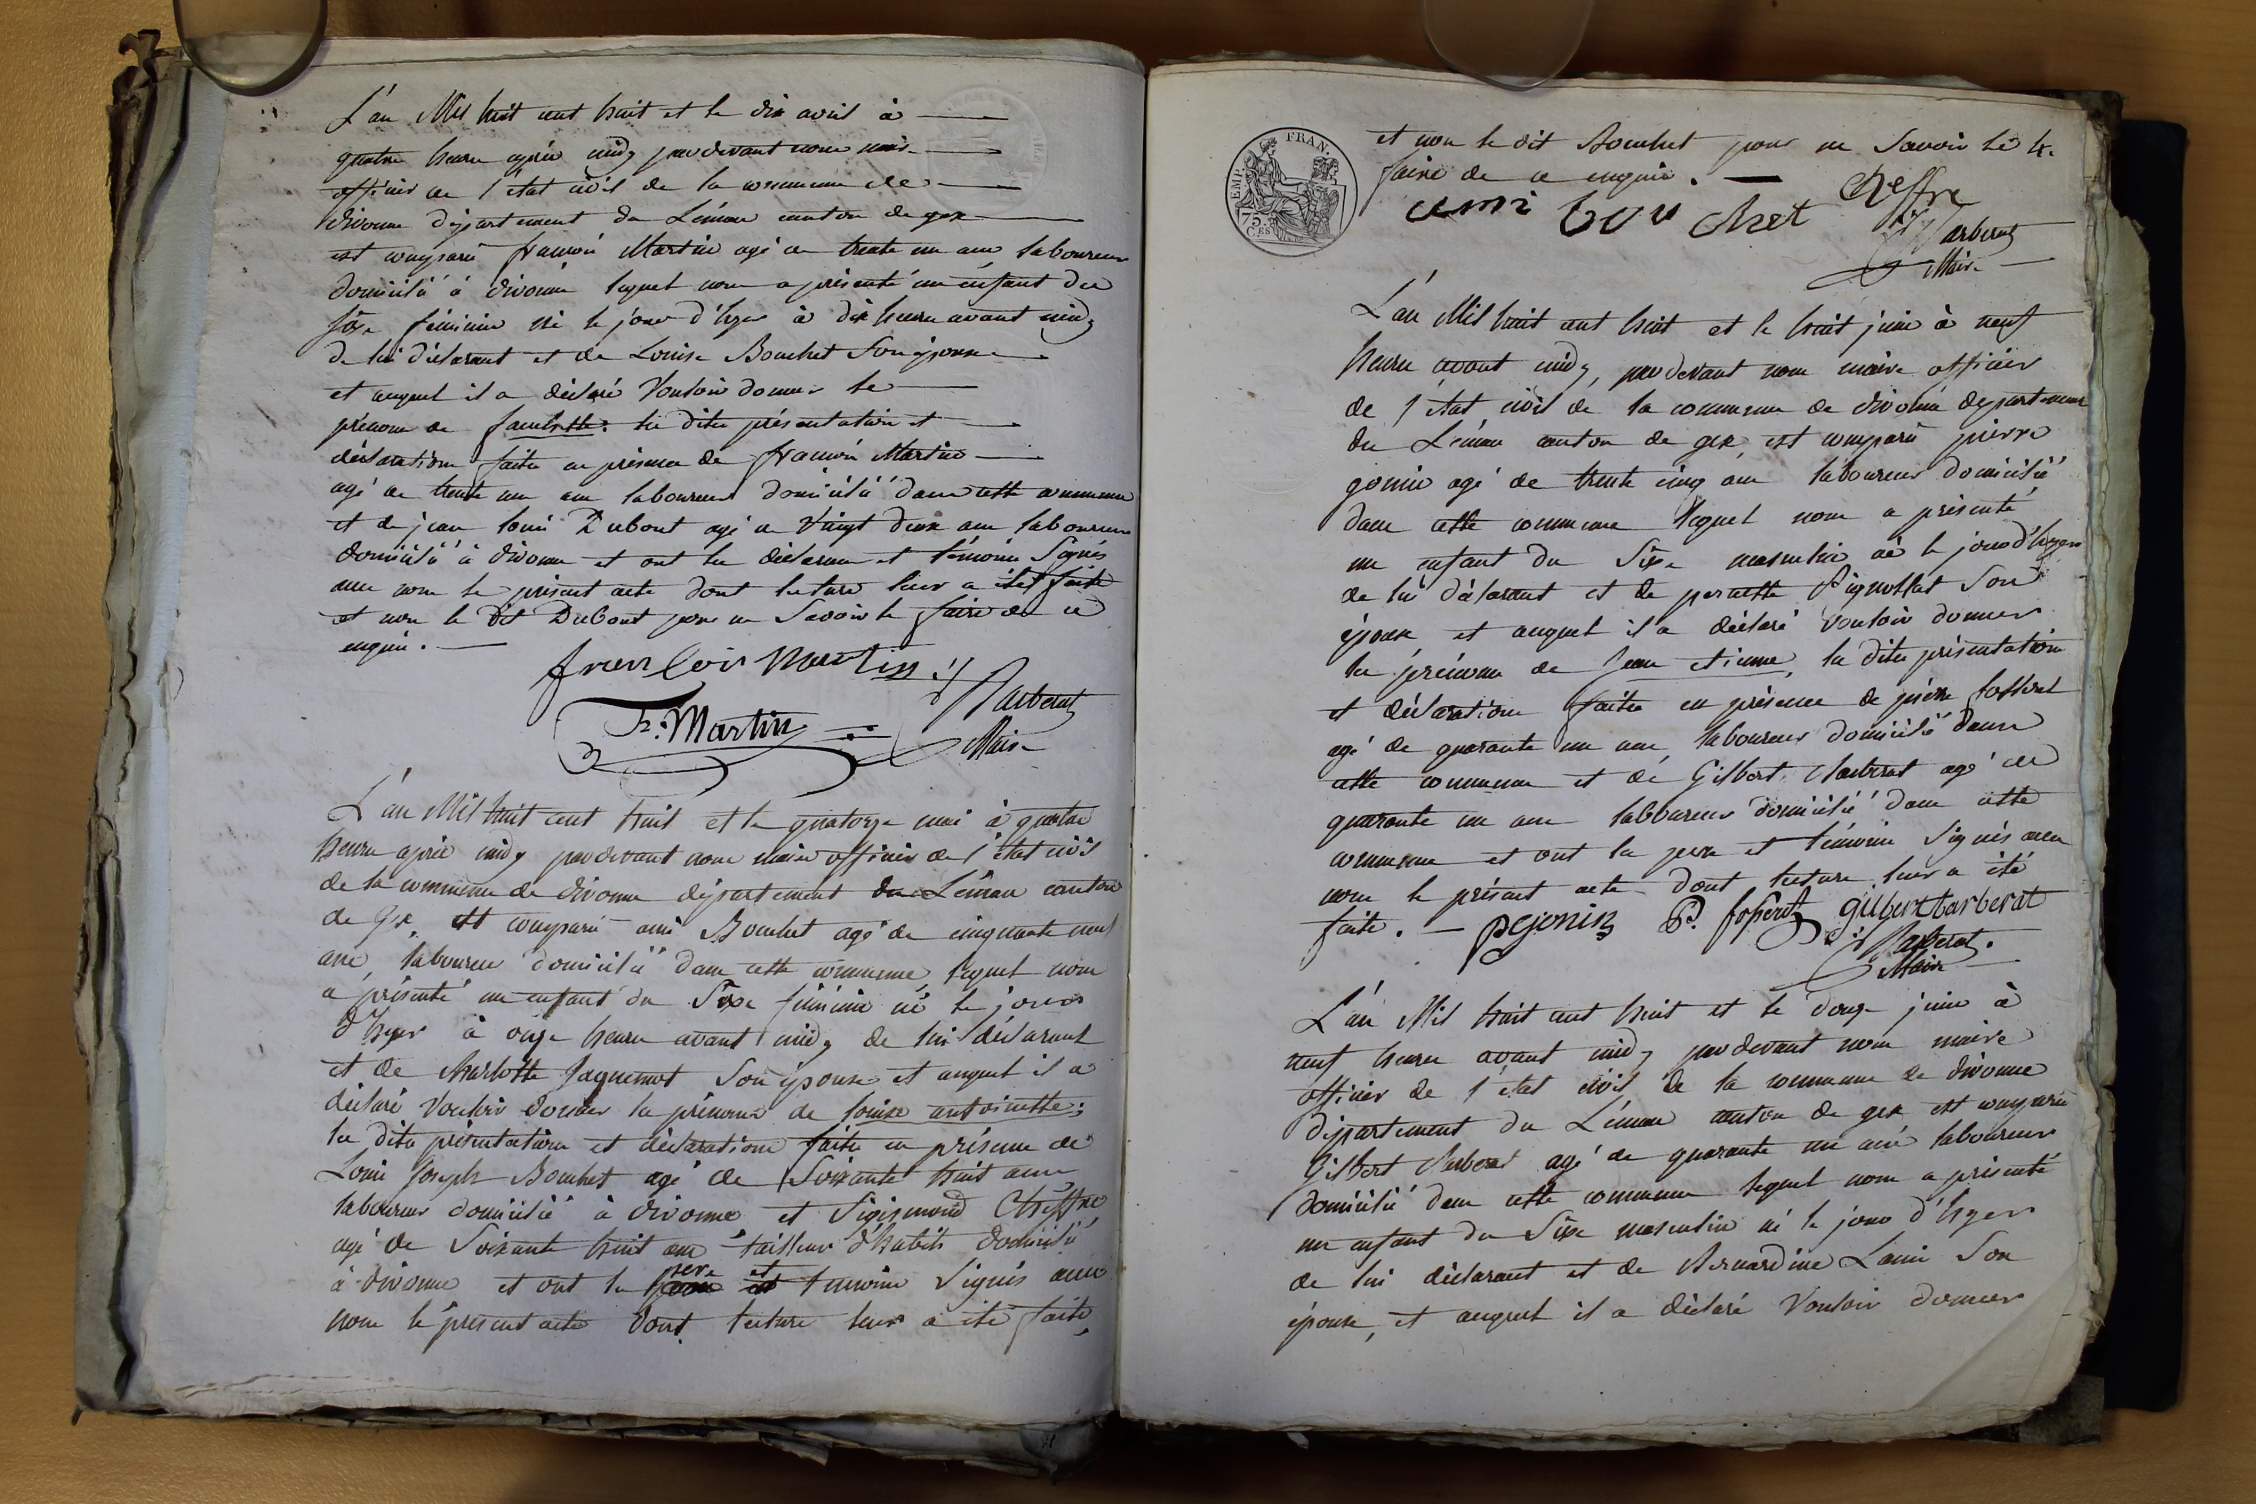 L'an Mil huit cent huit et le dix avril à
quatre heures après midy pardevant nous maire
officier de l'état civil de la commune de
divonne département du Léman canton de gex
est comparu françois Martin agé de trente un ans laboureur
domicilié à divonne lequel nous a présenté un enfant du
séxe féminin né le jour d'hyer à dix heures avant midy
de lui déclarant et de Louise Bouchet son épouse
et auquel il a déclaré vouloir donner le
prénom de les dites présentation et
déclaration faites en présence de françois Martin
agé de trente un ans laboureur domicilié dans cette commune
et de jean louis Dubout agé de vingt deux ans laboureur
domicilié à divonne et ont les déclarant et témoins signés
avec nous le présent acte dont lecture leur a été faite
et non le dit Dubout pour ne savoir le faire de ce
enquis.
françois martin
Barberat
Fs. Martin
Maire
L'an Mil huit cent huit et le quatorze mai à quatre
heures après midy pardevant nous maire officier de l'état civil
de la commune de divonne département du Léman canton
de Gex est comparu ami Bouchet agé de cinquante neuf
ans, laboureur domicilié dans cette commune, lequel nous
a présenté un enfant du séxe féminin né le jour
d'hyer à onze heures avant midy de lui déclarant
et de Charlotte Jaquemot son épouse et auquel il a
déclaré vouloir donner les prénoms de louise antoinette;
les dites présentation et déclaration faites en présence de
Louis Joseph Bouchet agé de soixante huit ans
laboureur domicilié à divonne et Sigismond Cheffre
agé de soixante huit ans tailleur d'habits domicilié
à divonne et ont les père et témoins signés avec
nous le présent acte dont lecture leur a été faite
FRAN.
EMP.
75
C.ES
et non le dit Bouchet pour ne savoir le
faire de ce enquis.
Cheffre
ami bou chet
Barberat
Maire
L'an Mil huit cent huit et le huit juin à neuf
heures avant midy, pardevant nous maire officier
de l'état civil de la commune de divonne département
du Léman canton de gex, est comparu pierre
gonin agé de trente cinq ans laboureur domicilié
dans cette commune lequel nous a présenté
un enfant du séxe masculin né le jour d'hyer
de lui déclarant et de pernette son
épouse et auquel il a déclaré vouloir donner
les prénoms de Jean etienne, les dites présentation
et déclaration faites en présence de pierre fosserat
agé de quarante un ans, laboureur domicilié dans
cette commune et de Gilbert Barberat agé de
quarante un ans laboureur domicilié dans cette
commune et ont les père et témoins signés avec
nous le présent acte dont lecture leur a été
faite.
gilbert barberat
Barberat.
Maire
L'an Mil huit cent huit et le douze juin à
neuf heures avant midy pardevant nous maire
officier de l'état civil de la commune de divonne
département du Léman canton de gex est comparu
Gilbert Barberat agé de quarante un ans laboureur
domicilié dans cette commune lequel nous a présenté
un enfant du séxe masculin né le jour d'hyer
de lui déclarant et de Bernardine Lami son
épouse, et auquel il a déclaré vouloir donner